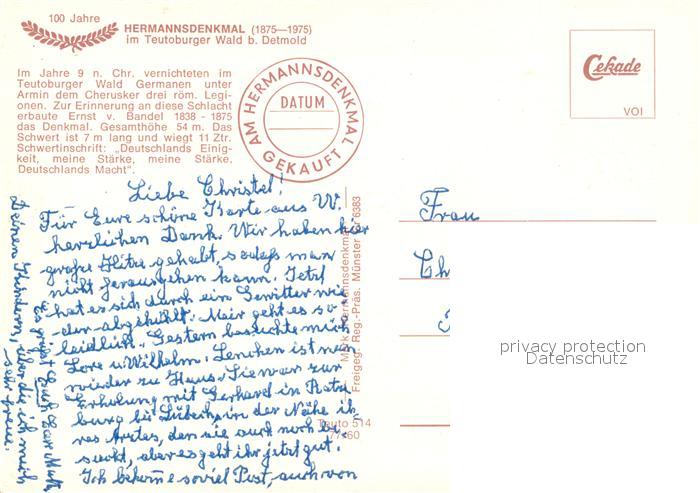 100 Jahre
HERMANNSDENKMAL (1875—1975)
im Teutoburger Wald b. Detmold
Im Jahre 9 n. Chr. vernichteten im
Teutoburger Wald Germanen unter
Armin dem Cherusker drei röm. Legi-
onen. Zur Erinnerung an diese Schlacht
erbaute Ernst v. Bandel 1838 - 1875
das Denkmal. Gesamthöhe 54 m. Das
Schwert ist 7 m lang und wiegt 11 Ztr.
Schwertinschrift: „Deutschlands Einig-
keit, meine Stärke, meine Stärke,
Deutschlands Macht".
AM HERMANNSDENKMAL
DATUM
GEKAUFT
Cekade
VOI
Liebe Christel!
Für Eure schöne Karte aus W.
herzlichen Dank. Wir haben hier
große Hitze gehabt, sodaß man
nicht herausgehen kann. Jetzt
hat es sich durch ein Gewitter wie-
der abgekühlt. Mir geht es so
leidlich. Gestern besuchte mich
Lore u. Wilhelm. Lenchen ist nun
wieder zu Haus. Sie war zur
Erholung mit Gerhard in Ratze
burg bei Lübeck, in der Nähe ih-
res Arztes, den sie auch noch be-
sucht, aber es geht ihr jetzt gut.
Ich bekome soviel Post, auch von
Deinen Kindern, über die ich mich
sehr freue.
Es grüßt Euch Eure Mutti
Frau
Ch
Freigeg. Reg.-Präs. Münster Nr 6383
Teuto 514
privacy protection
Datenschutz